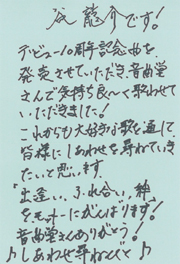 谷龍介です!
デビュー10周年記念曲を、
発売させていただき、音曲堂
さんで気持ち良〜く歌わせて
いただきました!
これからも大好きな歌を通して
皆様にしあわせを尋ねていき
たいと思います。
「出逢い、ふれ合い、絆」
をモットーにがんばります!
音曲堂さんありがとう!
♪しあわせ尋ねびと♪